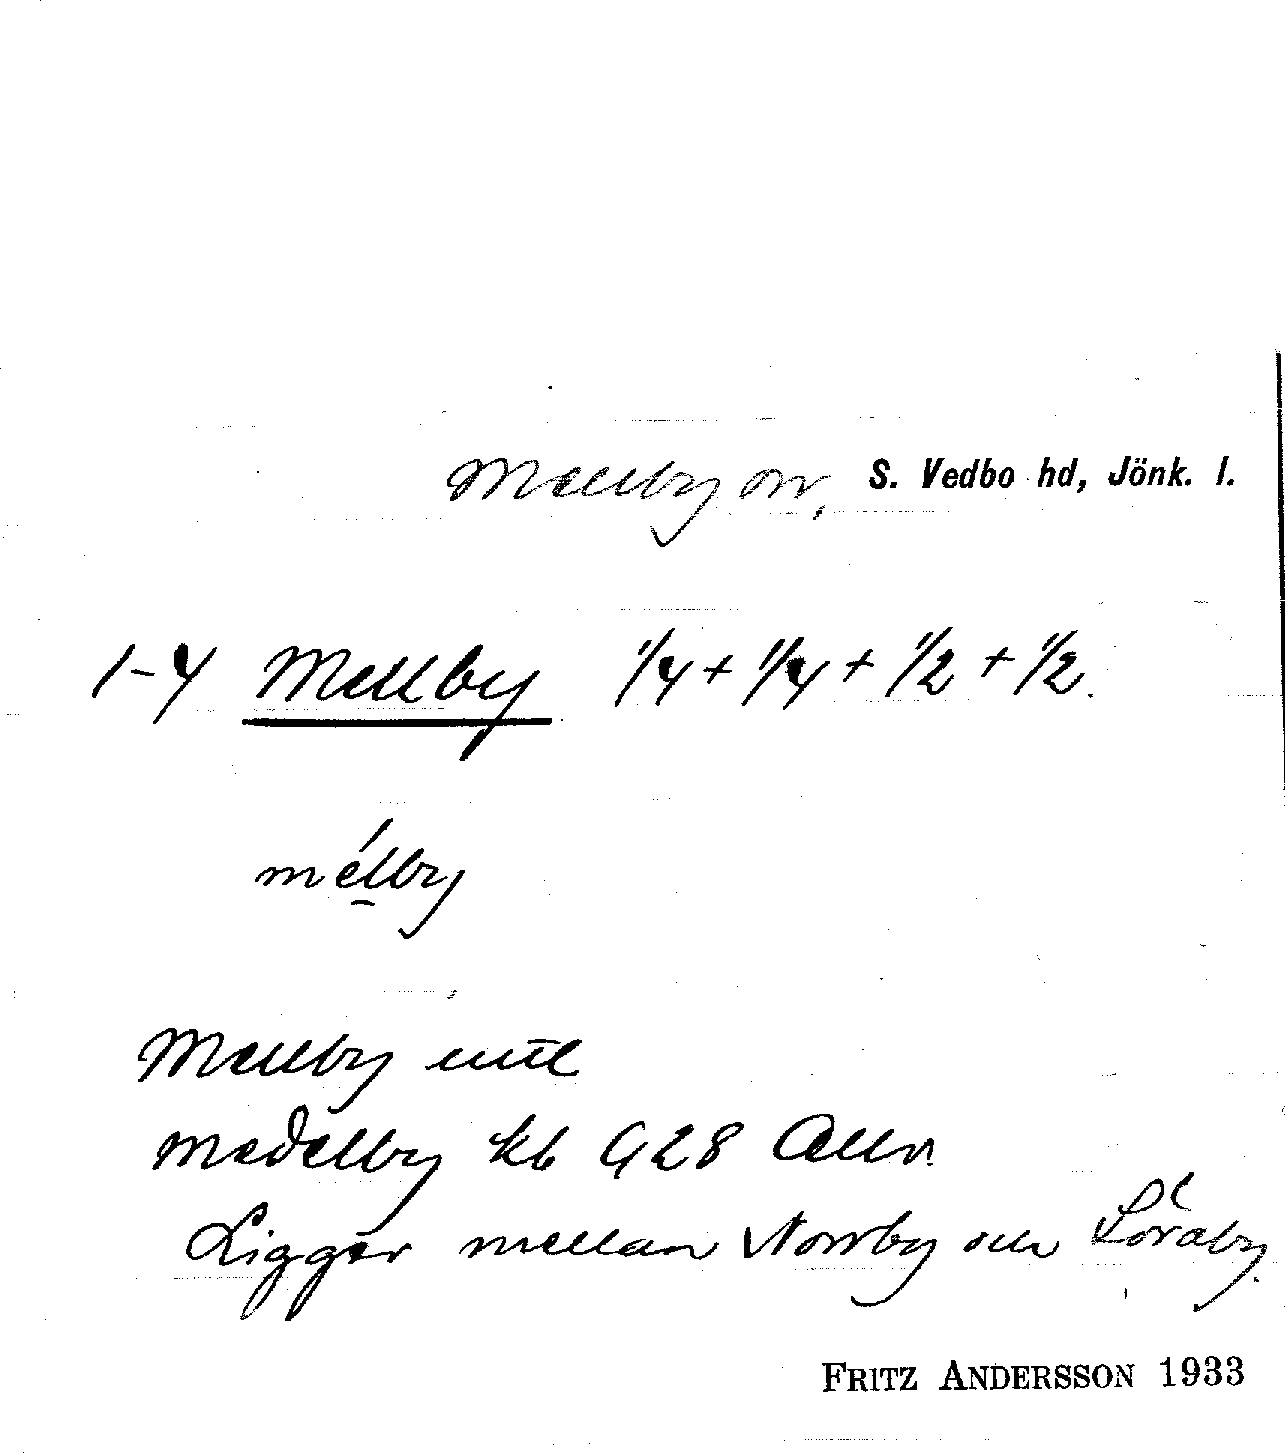 Mellby sn, S. Vedbo hd, Jönk. l.
1-4 Mellby 1/4 + 1/4 + 1/2 + 1/2.
mélby
Mellby
Medelby kb G 28
Ligger mellan Norrby och Söraby.
FRITZ ANDERSSON 1933